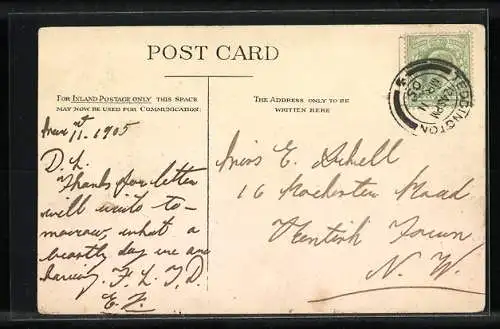 POST CARD
FOR INLAND POSTAGE ONLY THIS SPACE
MAY NOW BE USED FOR COMMUNICATION:
THE ADDRESS ONLY TO BE
WRITTEN HERE
11. 1905
D. L.
Thanks for letter
will write to-
morrow, what a
beastly day we are
having. F. L. I. D.
Miss E.
16 Rochester Road
Kentish Town
N. W.
TEDDINGTON